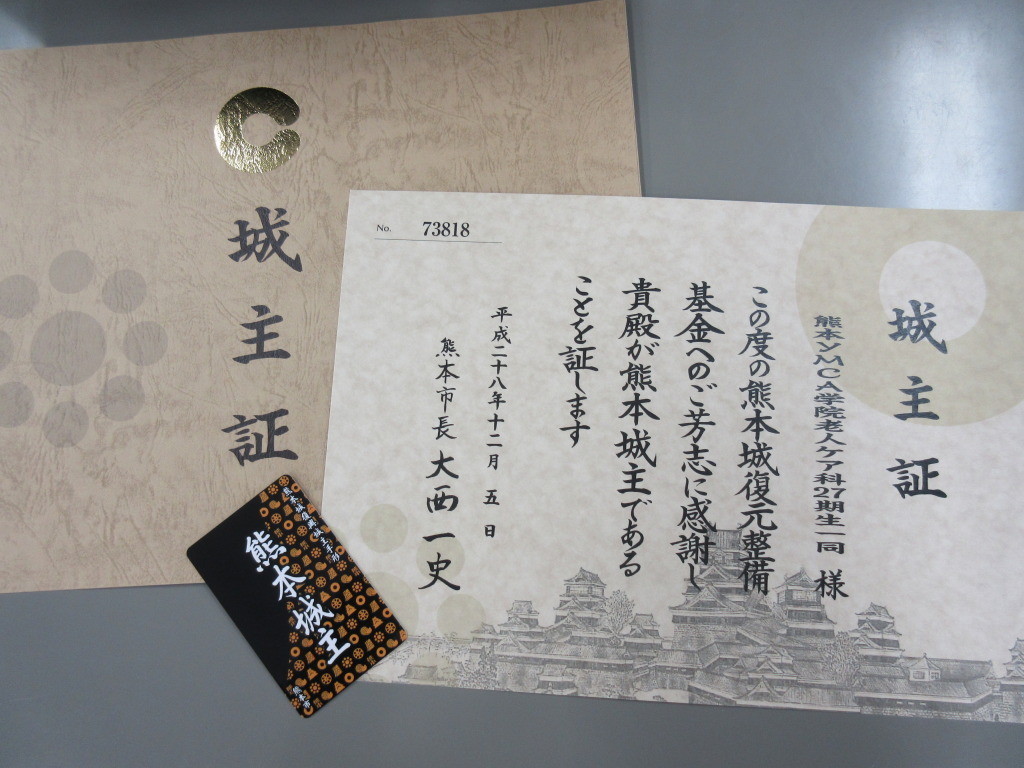 城主証
No. 73818
城主証
熊本YMCA学院老人ケア科27期生一同 様
この度の熊本城復元整備
基金へのご芳志に感謝し
貴殿が熊本城主である
ことを証します
平成二十八年十二月 五 日
熊本市長 大西一史
熊本城復興城主手形
熊本城主
熊本市